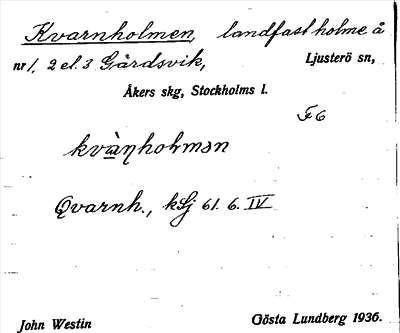 Kvarnholmen, landfast holme å
nr 1, 2 el. 3 Gärdsvik, Ljusterö sn,
Åkers skg, Stockholms l.
F6
kvàṇholmən
Qvarnh., kSj 61. 6. IV
John Westin Gösta Lundberg 1936.